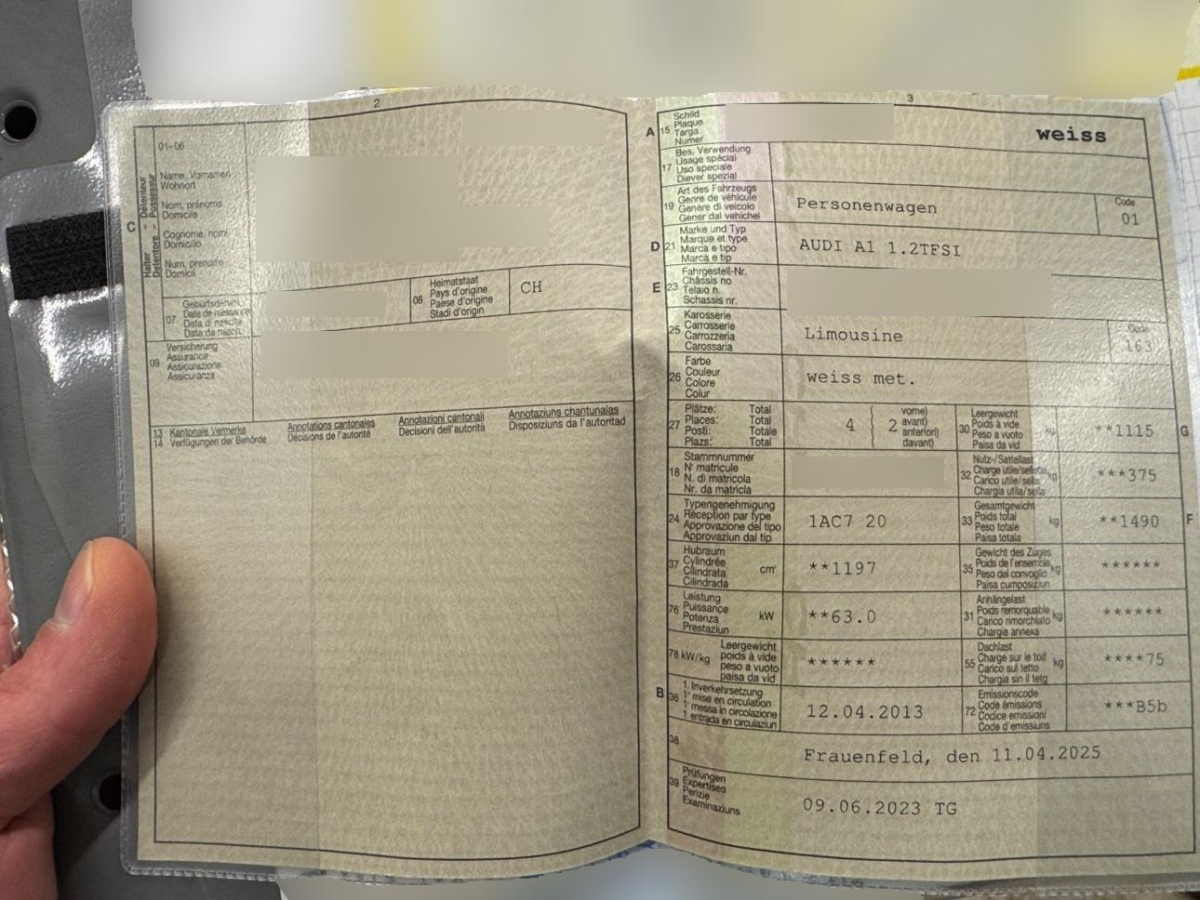 2
01-06
C
Halter - Détenteur
Detentore - Possessur
Name, Vornamen
Wohnort
Nom, prénoms
Domicile
Cognome, nomi
Domicilio
Num, prenums
Domicil
07
Data di nascita
08
Heimatstaat
Pays d'origine
Paese d'origine
Stadi d'origin
CH
09
Versicherung
Assurance
Assicurazione
Assicuranza
13 Kantonale Vermerke
14 Verfügungen der Behörde
Annotations cantonales
Décisions de l'autorité
Annotazioni cantonali
Decisioni dell'autorità
Annotaziuns chantunalas
Disposiziuns da l'autoritad
3
A 15
Schild
Plaque
Targa
Numer
weiss
17
Bes. Verwendung
Usage spécial
Uso speciale
Diever spezial
19
Art des Fahrzeugs
Genre de véhicule
Genere di veicolo
Gener dal vehichel
Personenwagen
Code
01
D 21
Marke und Typ
Marque et type
Marca e tipo
Marca e tip
AUDI A1 1.2TFSI
E 23
Fahrgestell-Nr.
Châssis no
Telaio n.
Schassis nr.
25
Karosserie
Carrosserie
Carrozzeria
Carossaria
Limousine
Code
163
26
Farbe
Couleur
Colore
Colur
weiss met.
27
Plätze: Total
Places: Total
Posti: Totale
Plazs: Total
4
2
vorne)
avant)
anteriori)
davant)
30
Leergewicht
Poids à vide
Peso a vuoto
Paisa da vid
kg
**1115
G
18
Stammnummer
N° matricule
N. di matricola
Nr. da matricla
32
Nutz-/Sattellast
Charge utile/sellette
Carico utile/sella
Chargia utila/sella
kg
***375
24
Typengenehmigung
Réception par type
Approvazione del tipo
Approvaziun dal tip
1AC7 20
33
Gesamtgewicht
Poids total
Peso totale
Paisa totala
kg
**1490
F
37
Hubraum
Cylindrée
Cilindrata
Cilindrada
cm³
**1197
35
Gewicht des Zuges
Poids de l'ensemble
Peso del convoglio
Paisa cumposiziun
kg
******
76
Leistung
Puissance
Potenza
Prestaziun
kW
**63.0
31
Anhängelast
Poids remorquable
Carico rimorchiato
Chargia annexa
kg
******
78 kW/kg
Leergewicht
poids à vide
peso a vuoto
paisa da vid
******
55
Dachlast
Charge sur le toit
Carico sul tetto
Chargia sin il tetg
kg
****75
B 36
1. Inverkehrsetzung
1ʳᵉ mise en circulation
1ª messa in circolazione
1. entrada en circulaziun
12.04.2013
72
Emissionscode
Code émissions
Codice emissioni
Code d'emissiuns
***B5b
38
Frauenfeld, den 11.04.2025
39
Prüfungen
Expertises
Perizie
Examinaziuns
09.06.2023 TG